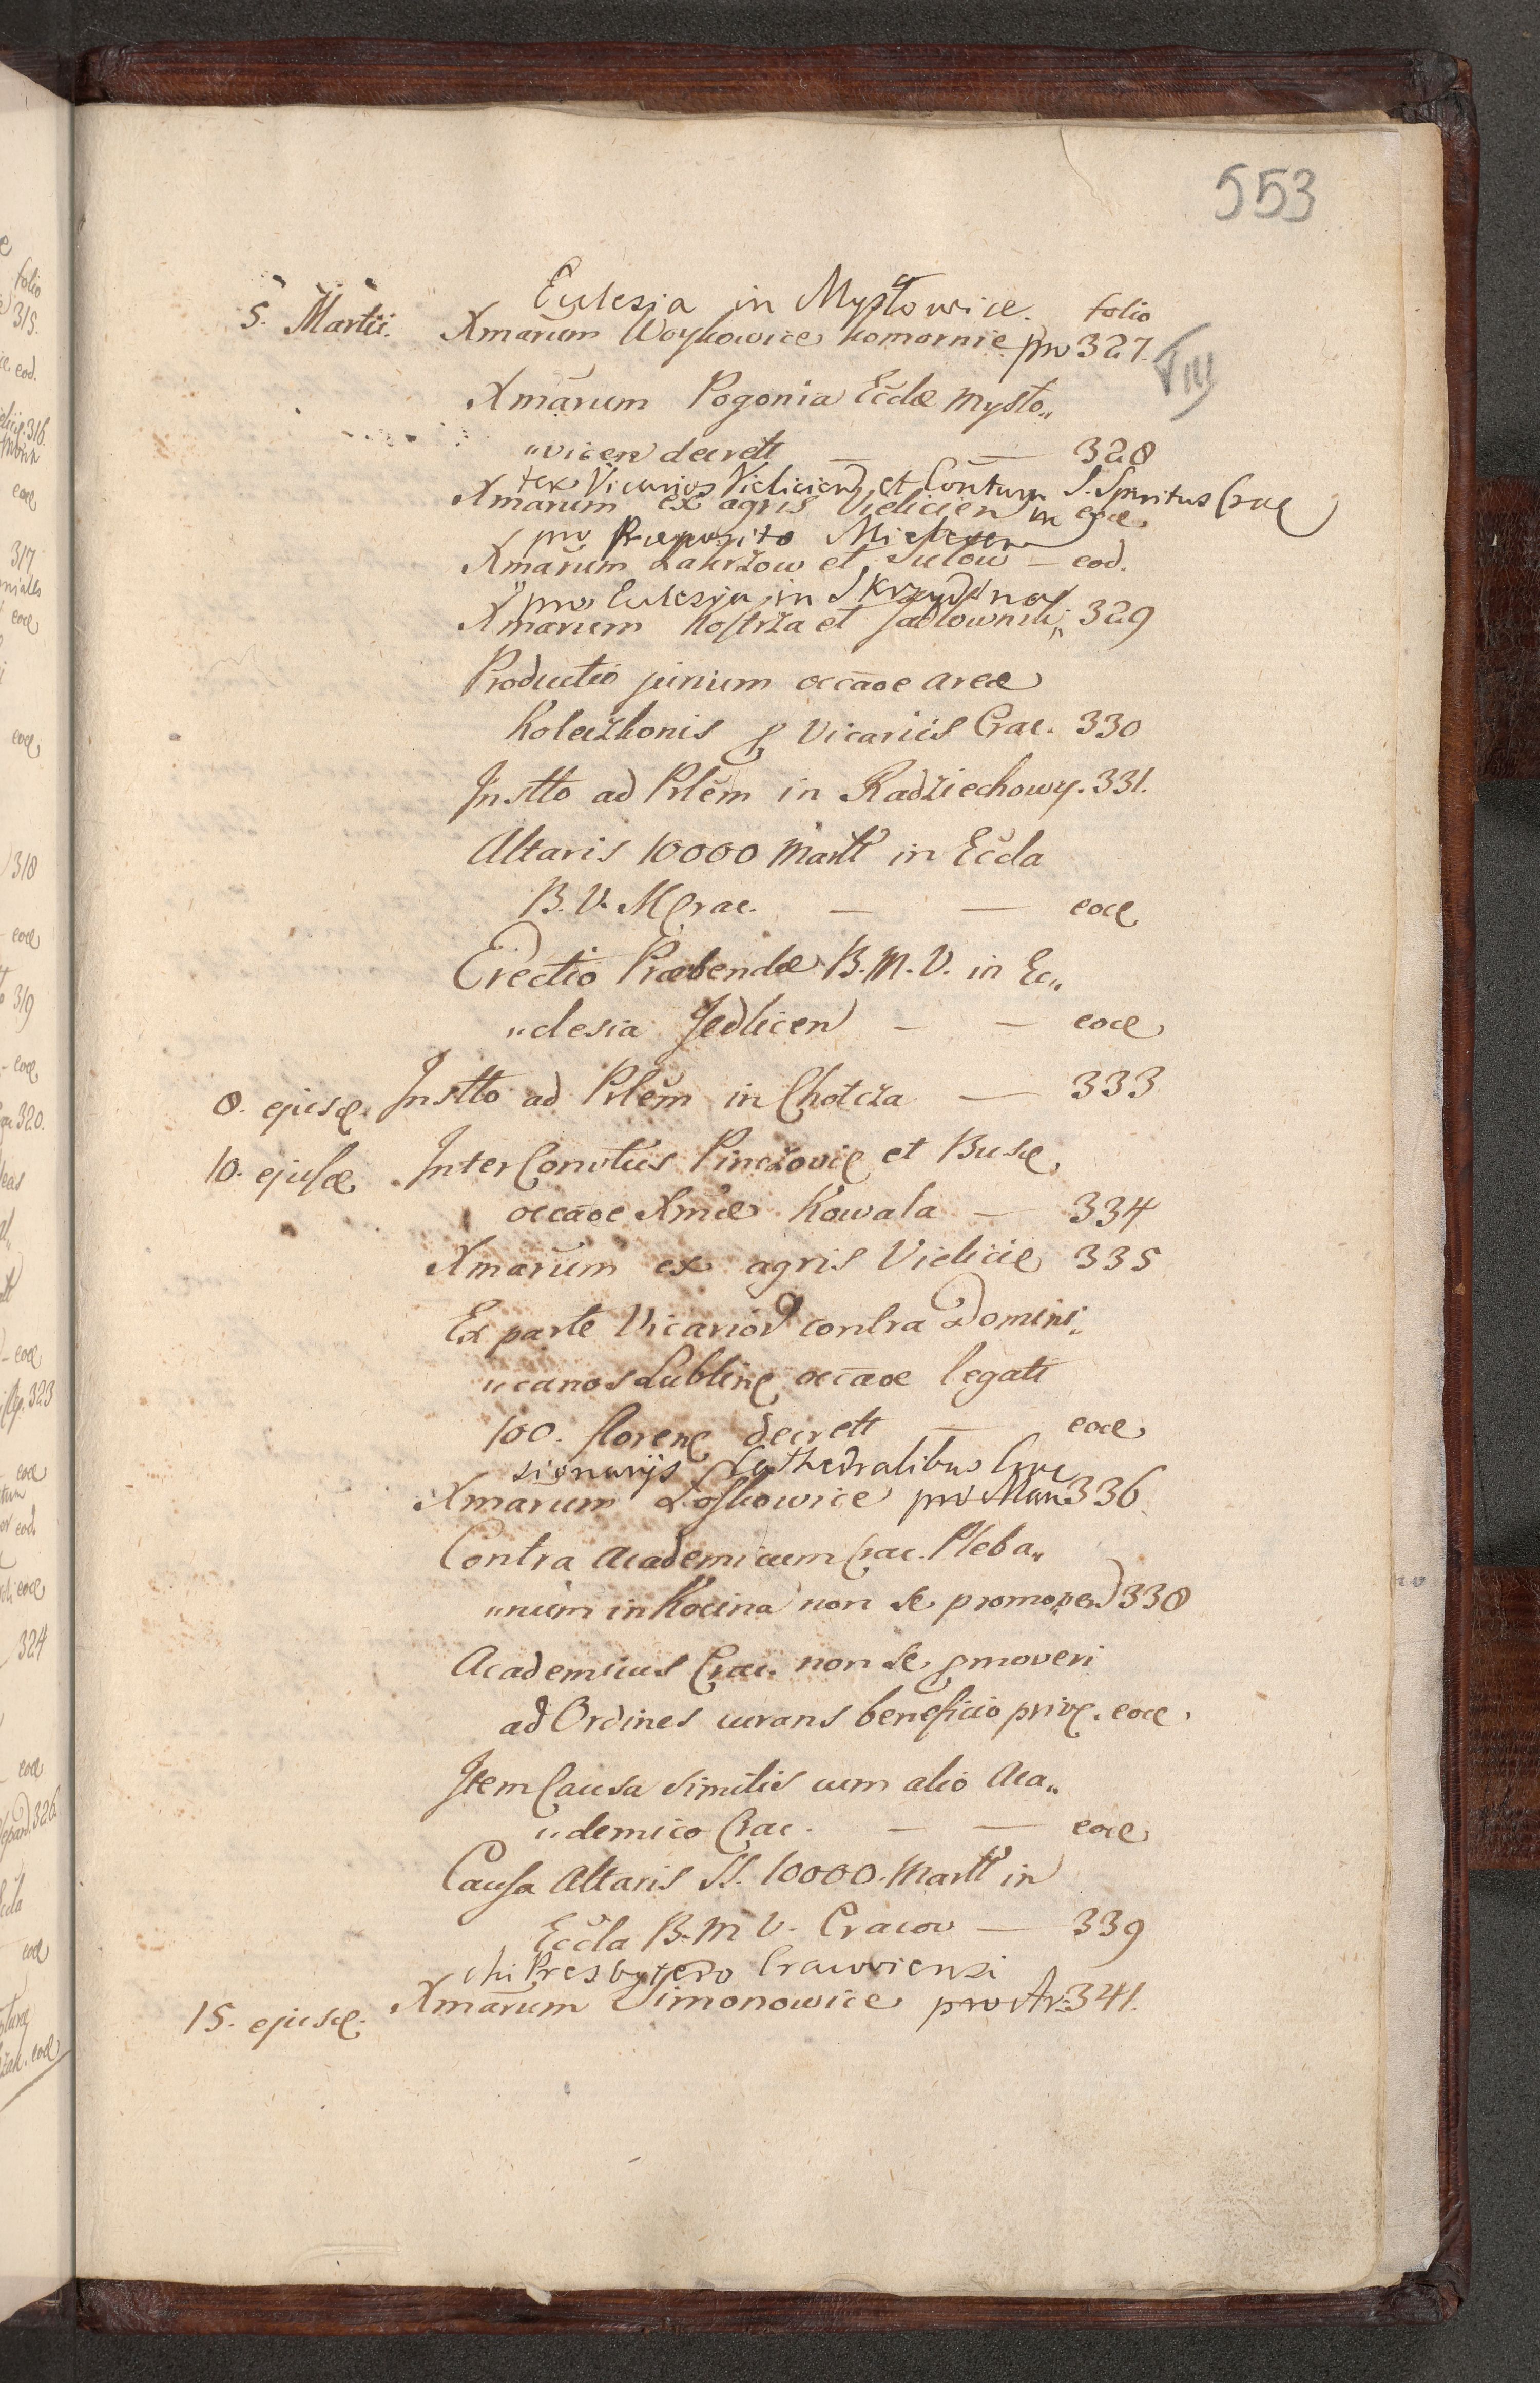 553
Ecclesia in Mysłowice. folio
5. Martii. Xmarum Woykowice komornie pro 327.
VIII
Xmarum Pogonia Ecclæ Mysło„
„vicen decrett — — 328
ter Vicarios Vieliciens et Contum S. Spiritus Crac
Xmarum ex agris Vielicien in eod.
pro Præposito
Xmarum Zakrżow et Sulow — eod.
pro Ecclesia in Skrzydlna
Xmarum Kostrża et Jadłowniki 329
Productio jurium occaoe areæ
Koleżkonis p Vicariis Crac. 330
Instto ad Plem in Radżiechowy. 331.
Altaris 10000 Martt in Eccla
B. V. M Crac. — — eod
Erectio Præbendæ B. M. V. in Ec„
„clesia Jedlicen — — eod
8. ejusd. Instto ad Plem in Chotcża — 333
10. ejusd. Inter Convtus Pincżovie et Busc,
occaoe Xmæ Kowala — 334
Xmarum ex agris Vielicie 335
Ex parte Vicarior contra Domini„
„canos Lubline occaoe legati
100. floren decrett — eod
sionarijs Cathedralibus Crac
Xmarum Łoskowice pro Man 336
Contra Academicum Crac. Pleba„
„num in Kocina non se promoven 338
Academicus Crac. non se pmoveri
ad Ordines curans beneficio priv. eod.
Item Causa similis cum alio Aca„
„demico Crac. — — eod
Causa Altaris SS. 10000. Martt in
Eccla B. M V. Cracov — 339
chi Presbytero Cracoviensi
15. ejusd. Xmarum Simonowice pro Ar: 341.